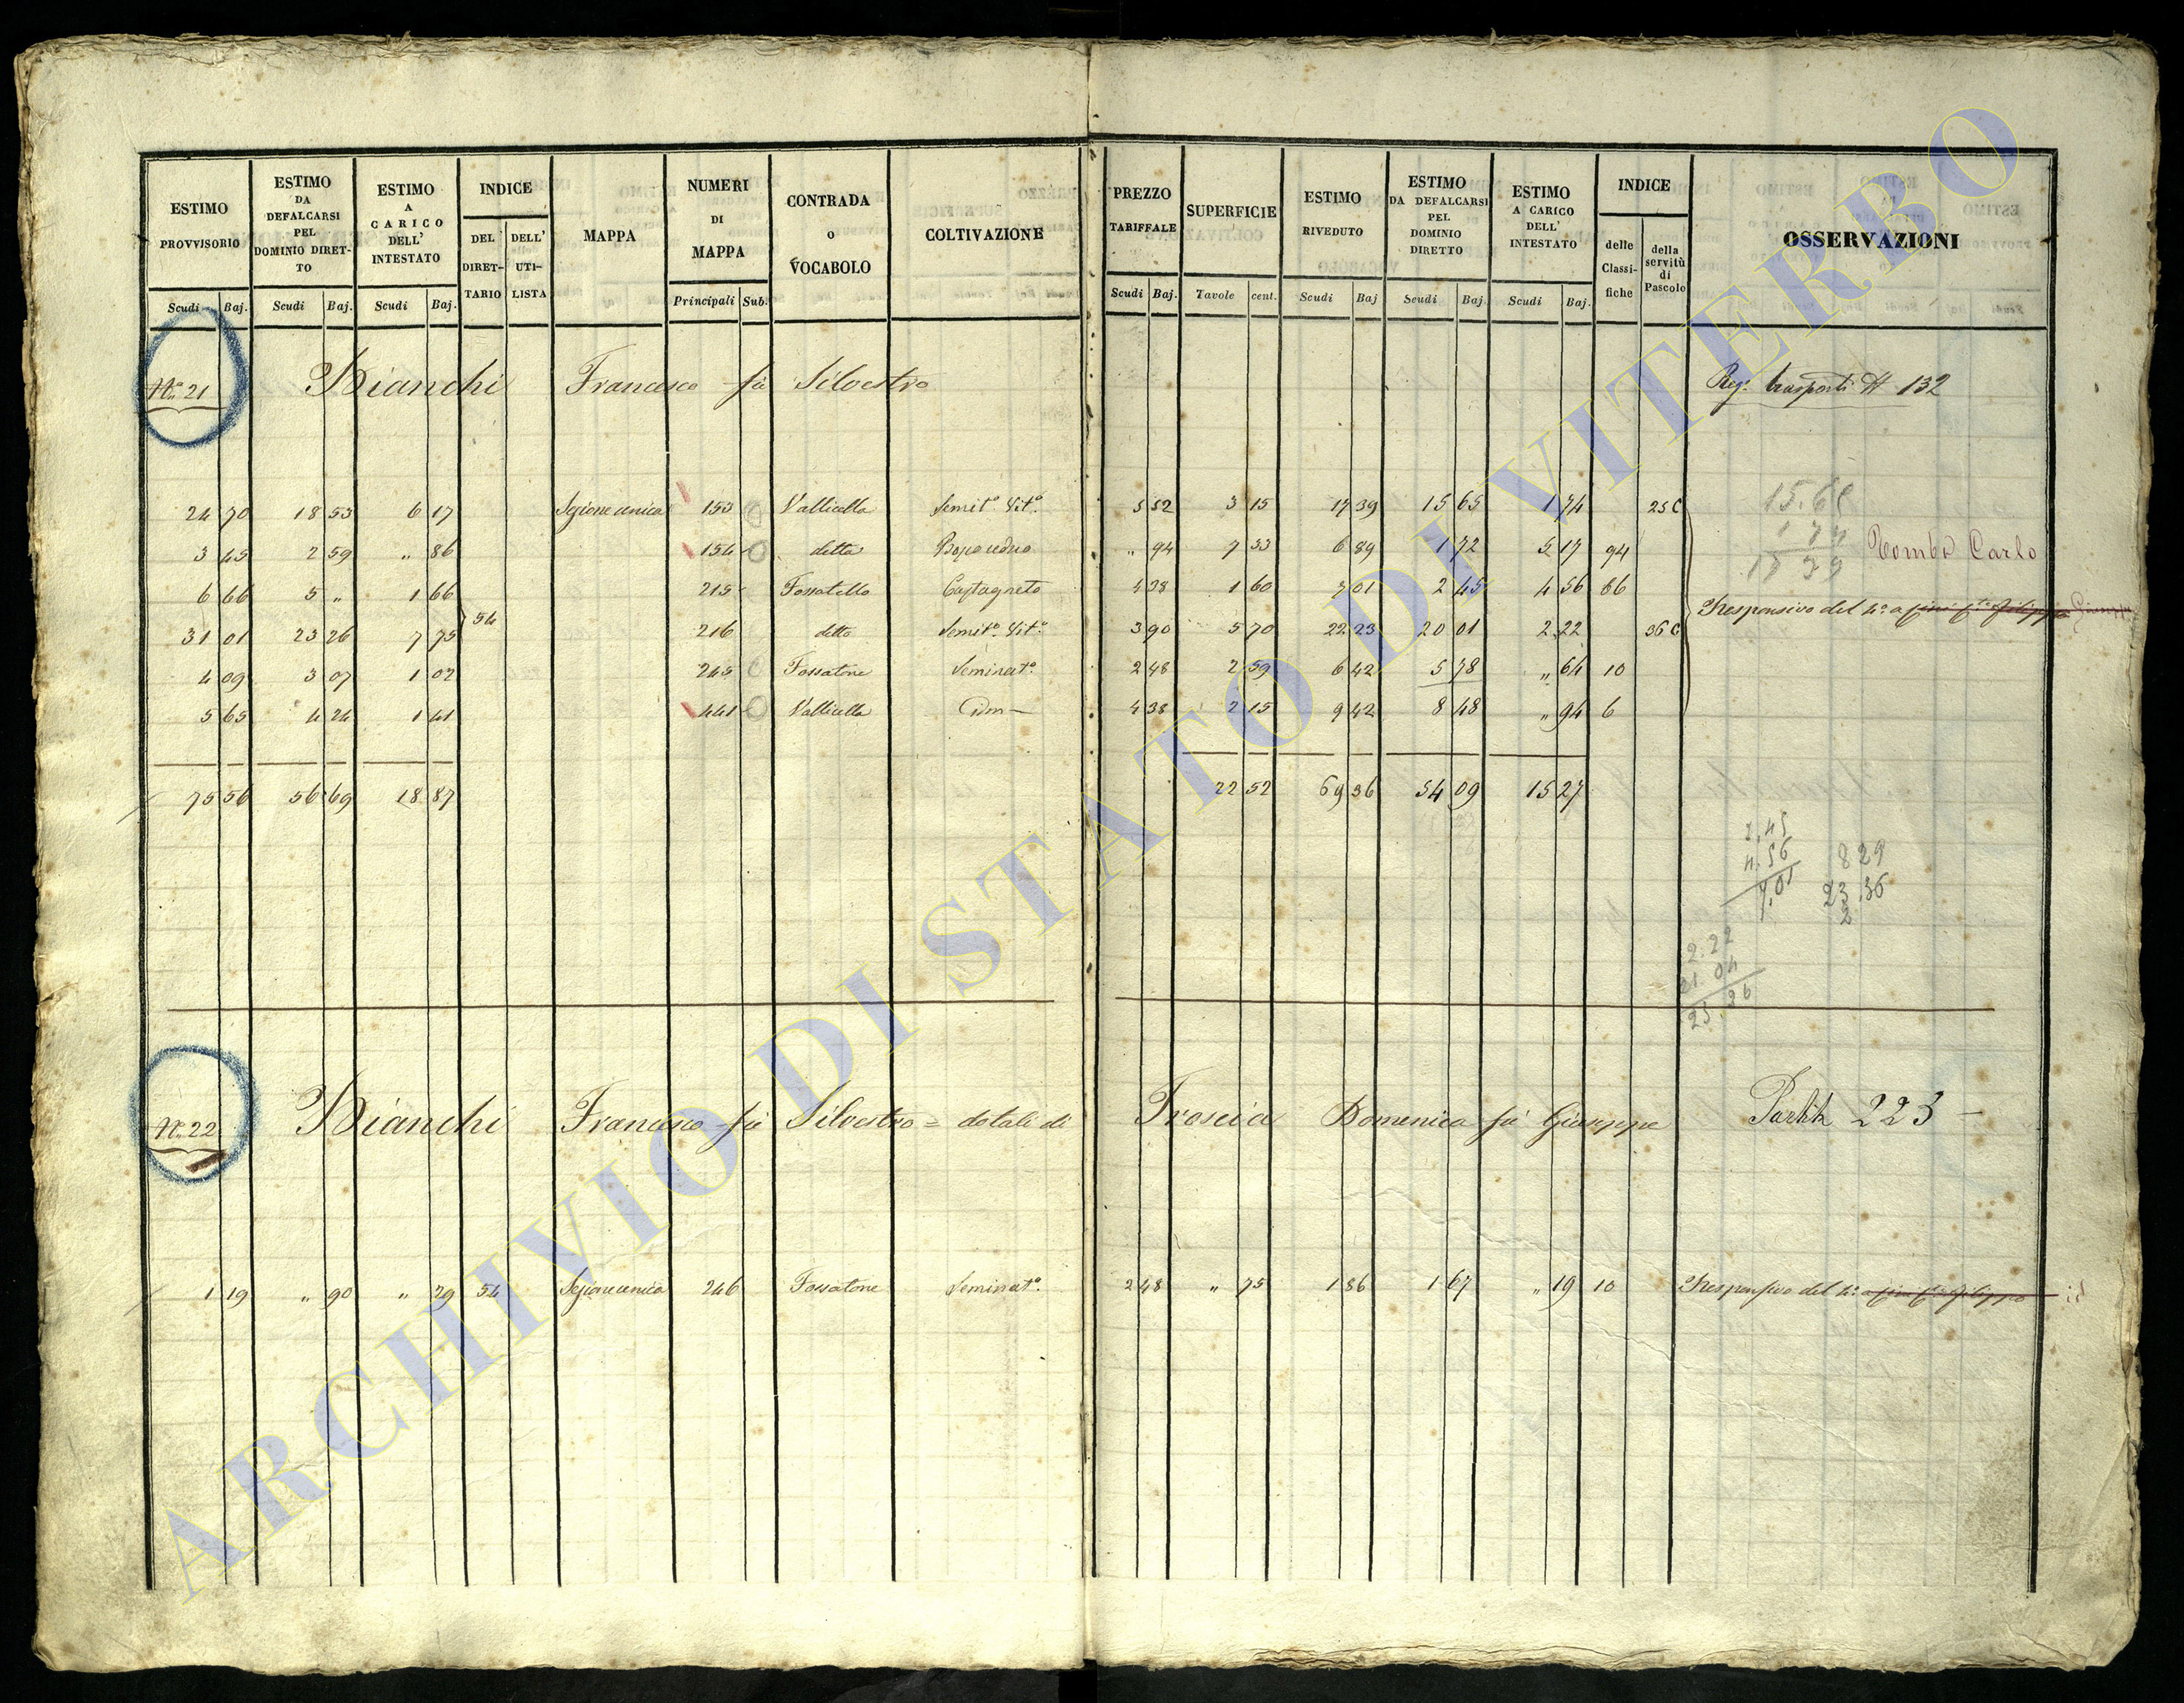 ESTIMO PROVVISORIO Scudi Baj. | ESTIMO DA DEFALCARSI PEL DOMINIO DIRETTO Scudi Baj. | ESTIMO A CARICO DELL' INTESTATO Scudi Baj. | INDICE DEL DIRETTARIO DELL' UTILISTA | MAPPA | NUMERI DI MAPPA Principali Sub. | CONTRADA o VOCABOLO | COLTIVAZIONE | PREZZO TARIFFALE Scudi Baj. | SUPERFICIE Tavole cent. | ESTIMO RIVEDUTO Scudi Baj | ESTIMO DA DEFALCARSI PEL DOMINIO DIRETTO Scudi Baj | ESTIMO A CARICO DELL' INTESTATO Scudi Baj. | INDICE delle Classifiche della servitù di Pascolo | OSSERVAZIONI
No. 21 Bianchi Francesco fù Silvestro Reg.° trasporti N 132
24 70 18 53 6 17 Sezione unica 153 Vallicella Semit° Vit° 5 52 3 15 17 39 15 65 1 74 25 C
3 45 2 59 " 86 154 detta " 94 7 33 6 89 1 72 5 17 94
6 66 5 " 1 66 215 Fossatello Castagneto 4 38 1 60 7 01 2 45 4 56 86
31 01 23 26 7 75 54 216 detto Semit° Vit° 3 90 5 70 22 23 20 01 2 22 36 C
4 09 3 07 1 02 245 Fossatone Seminat° 2 48 2 59 6 42 5 78 " 64 10
5 65 4 24 1 41 441 Vallicella Idm 4 38 2 15 9 42 8 48 " 94 6
15.65
1 74
17 39
Carlo
Responsivo del 4°
75 56 56 69 18 87 22 52 69 36 54 09 15 27
2,45
4.56
7.01
8 29
23.36
2
2.22
21 04
23.26
No. 22 Bianchi Francesco fù Silvestro = dotali di Troscia Domenica fù Giuseppe Partita 223
1 19 " 90 " 29 54 Sezione unica 246 Fossatone Seminat° 2 48 " 75 1 86 1 67 " 19 10 Responsivo del 4°
ARCHIVIO DI STATO DI VITERBO